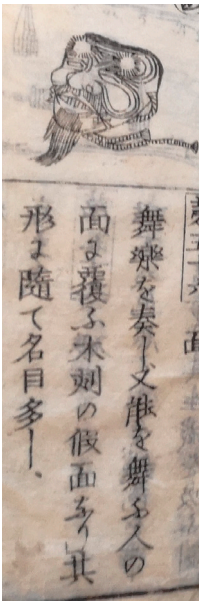 舞樂を奏し又能を舞ふ人の
面に覆ふ木刻の假面なり」其
形に隨て名目多し、